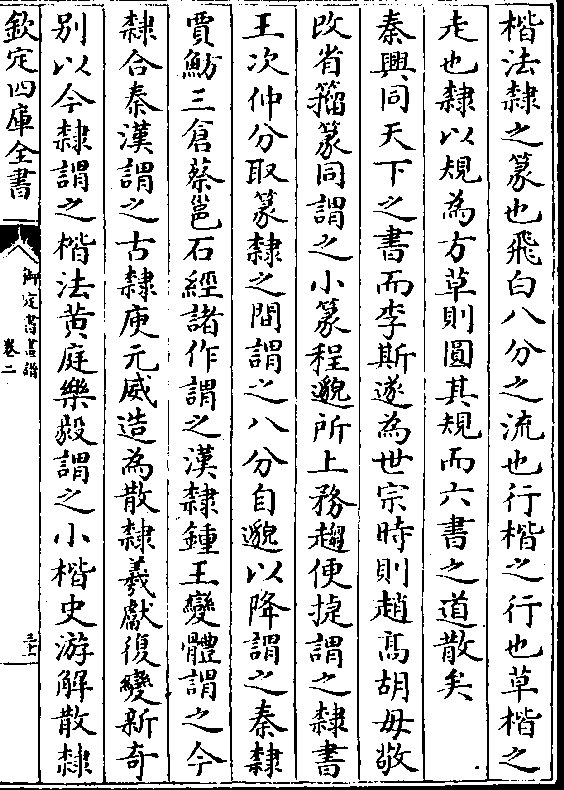 楷法隸之篆也飛白八分之流也行楷之行也草楷之
走也隸以規為方草則圓其規而六書之道散矣
秦興同天下之書而李斯遂為世宗時則趙高胡毋敬
改省籀篆同謂之小篆程邈所上務趨便捷謂之隸書
王次仲分取篆隸之間謂之八分自邈以降謂之秦隸
賈魴三倉蔡邕石經諸作謂之漢隸鍾王變體謂之今
隸合秦漢謂之古隸庾元威造為散隸羲獻復變新奇
別以今隸謂之楷法黃庭樂毅謂之小楷史游解散隸
欽定四庫全書
御定書畫譜
卷二
三十